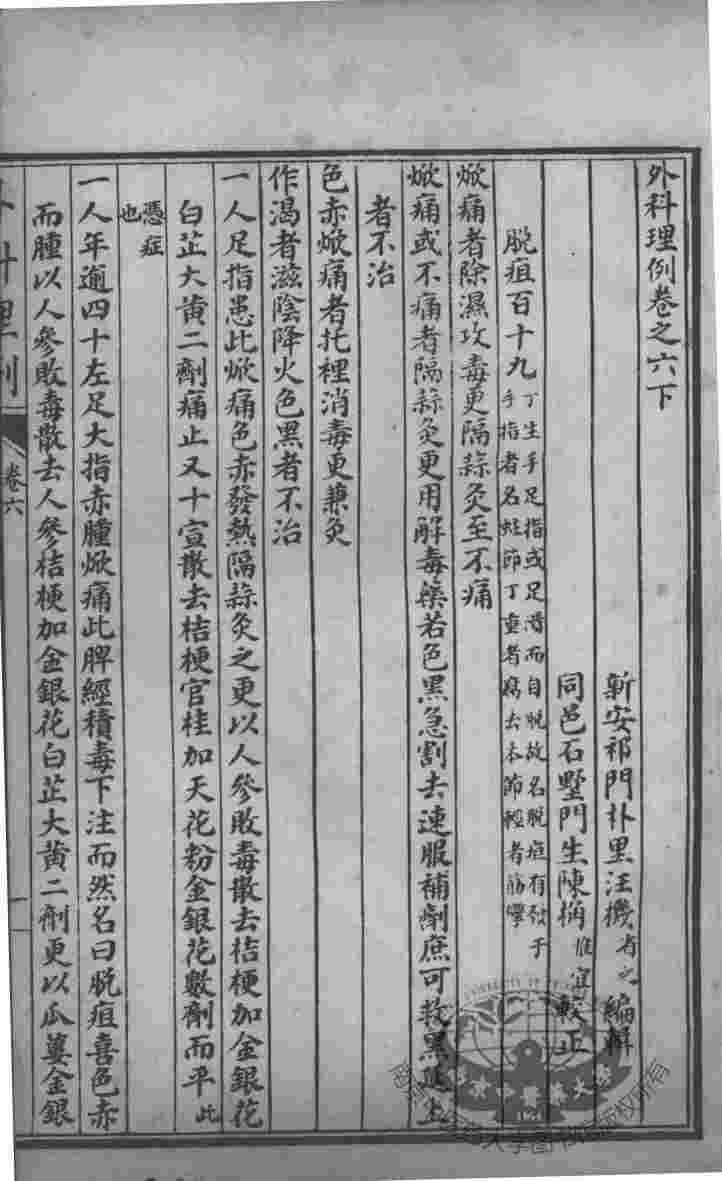 外科理例卷之六下
新安祁門朴里汪機省之編輯
同邑石墅門生陳桷惟宜較正
脫疽百十九
丁生手足指或足背而自脫故名脫疽有發于
手指者名蛀節丁重者腐去本節輕者筋攣
焮痛者除濕攻毒更隔蒜灸至不痛
焮痛或不痛者隔蒜灸更用解毒藥若色黑急割去速服補劑庶可救黑延上
者不治
色赤焮痛者托裡消毒更兼灸
作渴者滋陰降火色黑者不治
一人足指患此焮痛色赤發熱隔蒜灸之更以人參敗毒散去桔梗加金銀花
白芷大黃二劑痛止又十宣散去桔梗官桂加天花粉金銀花數劑而平此
憑症
也
一人年逾四十左足大指赤腫焮痛此脾經積毒下注而然名曰脫疽喜色赤
而腫以人參敗毒散去人參桔梗加金銀花白芷大黃二劑更以瓜蔞金銀
外科理例
卷六
一